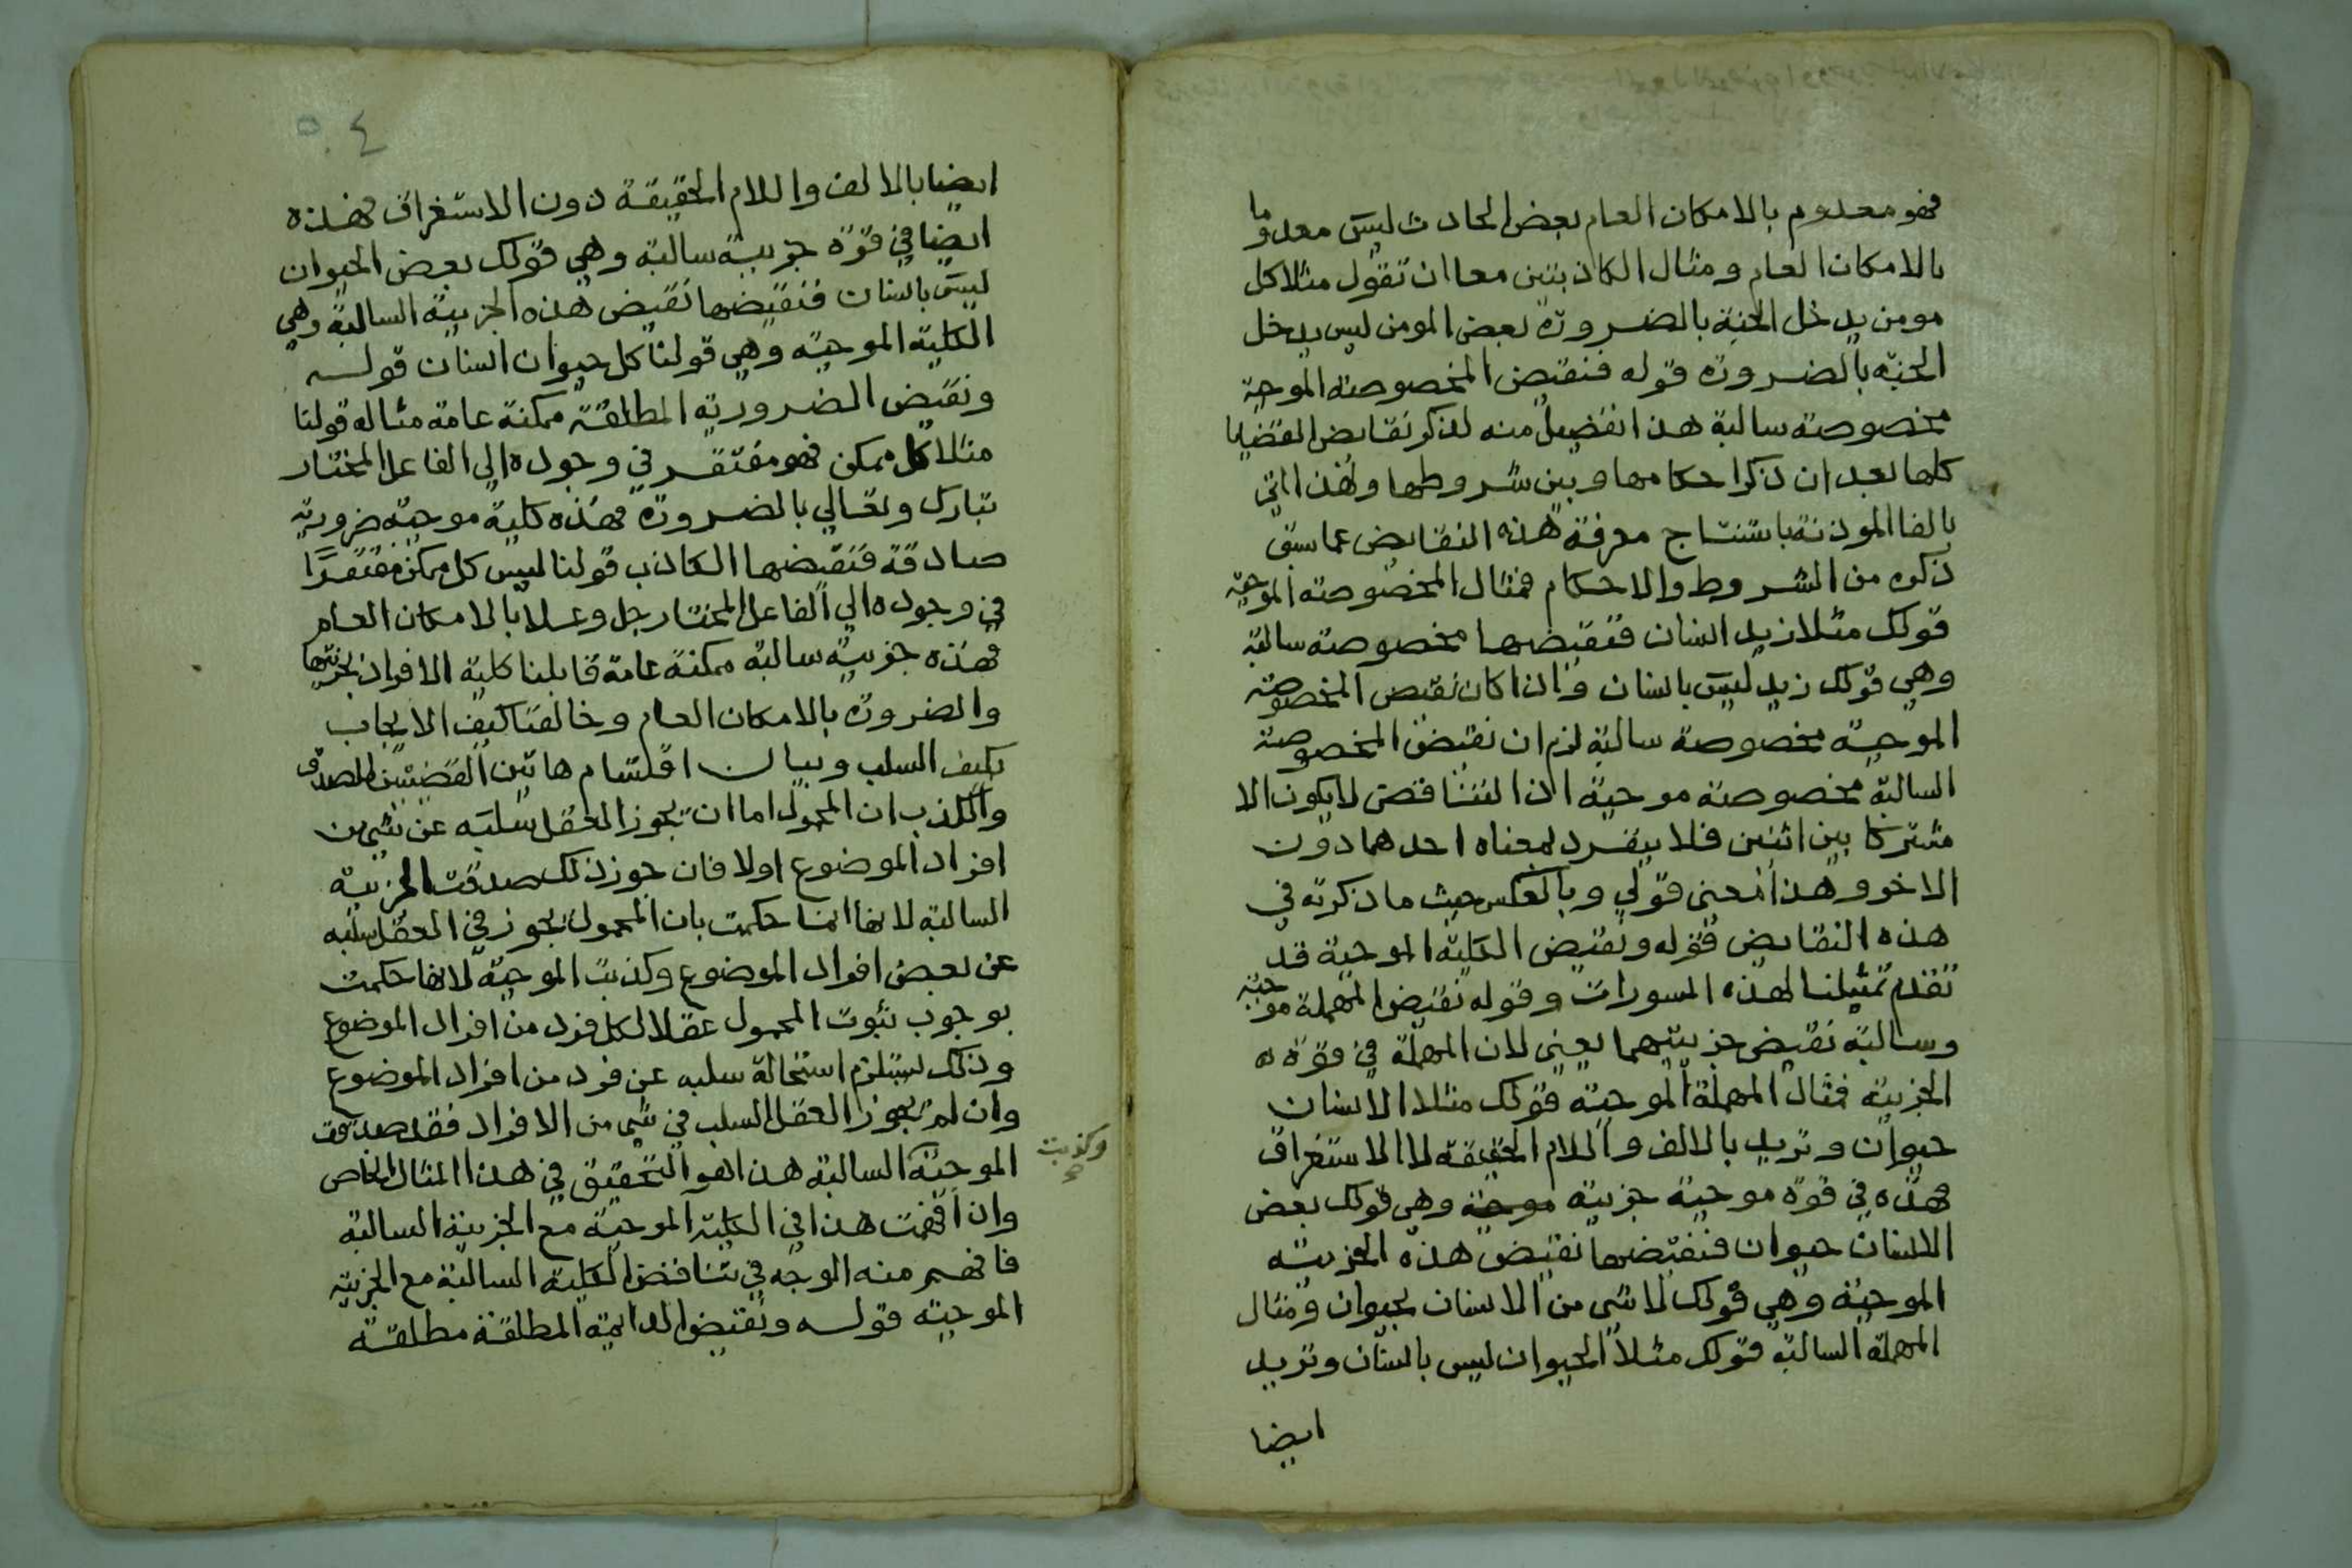 فهو معدوم بالامكان العام بعض الحادث ليس معدوما
بالامكان العام ومثال الكاذبتين معا ان تقول مثلا كل
مومن يدخل الجنة بالضرورة بعض المومن ليس يدخل
الجنة بالضرورة قوله فنقيض المخصوصة الموجبة
مخصوصة سالبة هذا تفصيل منه لذكر نقايض القضايا
كلها بعد ان ذكر احكامها وبين شروطها ولهذا اتي
بالفا الموذنة باستنتاج معرفة هذه النقايض عما سبق
ذكره من الشروط والاحكام فمثال المخصوصة الموجبة
قولك مثلا زيد انسان فنقيضها مخصوصة سالبة
وهي قولك زيد ليس بانسان واذا كان نقيض المخصوصة
الموجبة مخصوصة سالبة لزم ان نقيض المخصوصة
السالبة مخصوصة موجبة اذ التناقض لا يكون الا
مشتركا بين اثنين فلا ينفرد بمعناه احدهما دون
الاخر وهذا معنى قولي وبالعكس حيث ما ذكرته في
هذه النقايض قوله ونقيض الكلية الموجبة قد
تقدم تمثيلنا لهذه المسورات وقوله نقيض المهملة موجبة
وسالبة نقيض جزييتهما يعني لان المهملة في قوة
الجزيية فمثال المهملة الموجبة قولك مثلا الانسان
حيوان وتريد بالالف واللام الحقيقة لا الاستغراق
فهذه في قوة موجبة جزيية موجبة وهي قولك بعض
الانسان حيوان فنقيضها نقيض هذه الجزيية
الموجبة وهي قولك لا شي من الانسان بحيوان ومثال
المهملة السالبة قولك مثلا الحيوان ليس بانسان وتريد
ايضا
٥٤
ايضا بالالف واللام الحقيقة دون الاستغراق فهذه
ايضا في قوة جزيية سالبة وهي قولك بعض الحيوان
ليس بانسان فنقيضها نقيض هذه الجزيية السالبة وهي
الكلية الموجبة وهي قولنا كل حيوان انسان قوله
ونقيض الضرورية المطلقة ممكنة عامة مثاله قولنا
مثلا كل ممكن فهو مفتقر في وجوده الي الفاعل المختار
تبارك وتعالي بالضرورة فهذه كلية موجبة ضرورية
صادقة فنقيضها الكاذب قولنا ليس كل ممكن مفتقرًا
في وجوده الي الفاعل المختار جل وعلا بالامكان العام
فهذه جزيية سالبة ممكنة عامة قابلنا كلية الافراد بجزييتها
والضرورة بالامكان العام وخالفنا كيف الايجاب
بكيف السلب وبيان اقتسام هاتين القضيتين للصدق
والكذب ان المحمول اما ان يجوز العقل سلبه عن شي من
افراد الموضوع اولا فان جوز ذلك صدقت الجزيية
السالبة لانها انما حكمت بان المحمول يجوز في العقل سلبه
عن بعض افراد الموضوع وكذبت الموجبة لانها حكمت
بوجوب ثبوت المحمول عقلا لكل فرد من افراد الموضوع
وذلك يستلزم استحالة سلبه عن فرد من افراد الموضوع
وان لم يجوز العقل السلب في شي من الافراد فقد صدقت
الموجبة السالبة هذا هو التحقيق في هذا المثال الخاص
وكذبت
وان اقمت هذا في الكلية الموجبة مع الجزيية السالبة
فافهم منه الوجه في تناقض الكلية السالبة مع الجزيية
الموجبة قوله ونقيض الدايمة المطلقة مطلقة